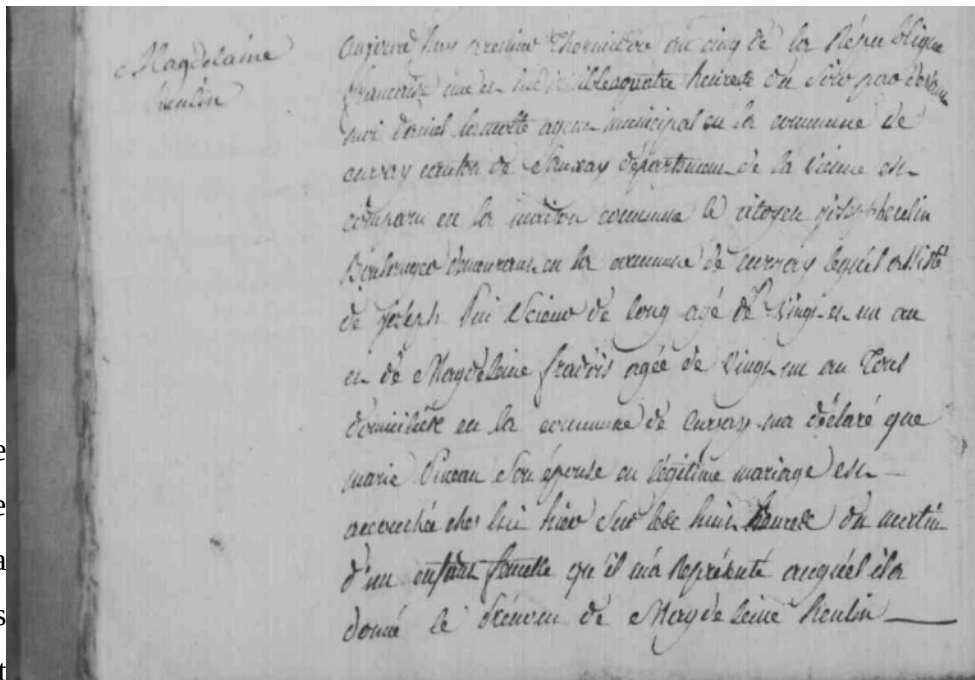 Magdelaine
heulin
aujourd huy premier Thermidor an cinq de la Republique
francaise une et indivisible quatre heures du soir par devant
moi daniel lamotte agent municipal en la commune de
curzay canton de Sanxay département de la vienne est
comparu en la maison commune le citoyen joseph heulin
Boulanger demeurant en la commune de curzay lequel assisté
de joseph Scieur de long agé de vingt et un an
et de Magdeleine agée de vingt un an Tous
domicilié en la commune de curzay ma déclaré que
marie Son épouse en légitime mariage est
accouchée ches lui hier Sur les huit heures du matin
d'un enfant femelle qu'il m'a Représenté auquel il a
donné le prénom de Magdeleine heulin
e
e
a
s
t